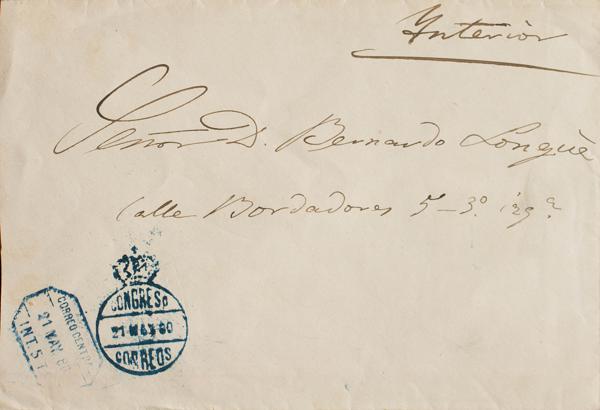 Interior
Señor D. Bernardo Longüe
Calle Bordadores 5-3º izqª
CORREO CENTRAL
21 MAY. 80
INT. 5 T
CONGRESO
21 MAY 80
CORREOS